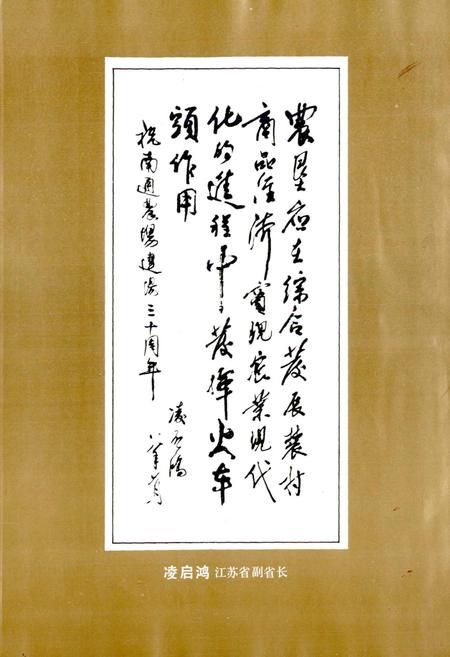 農垦应在综合發展農村
商品经济實现農業现代
化的進程中發揮火车
頭作用
祝南通農場建場三十周年
凌启鸿
凌启鸿 江苏省副省长